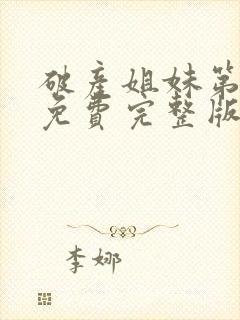 破产姐妹第
免费完整版
李娜